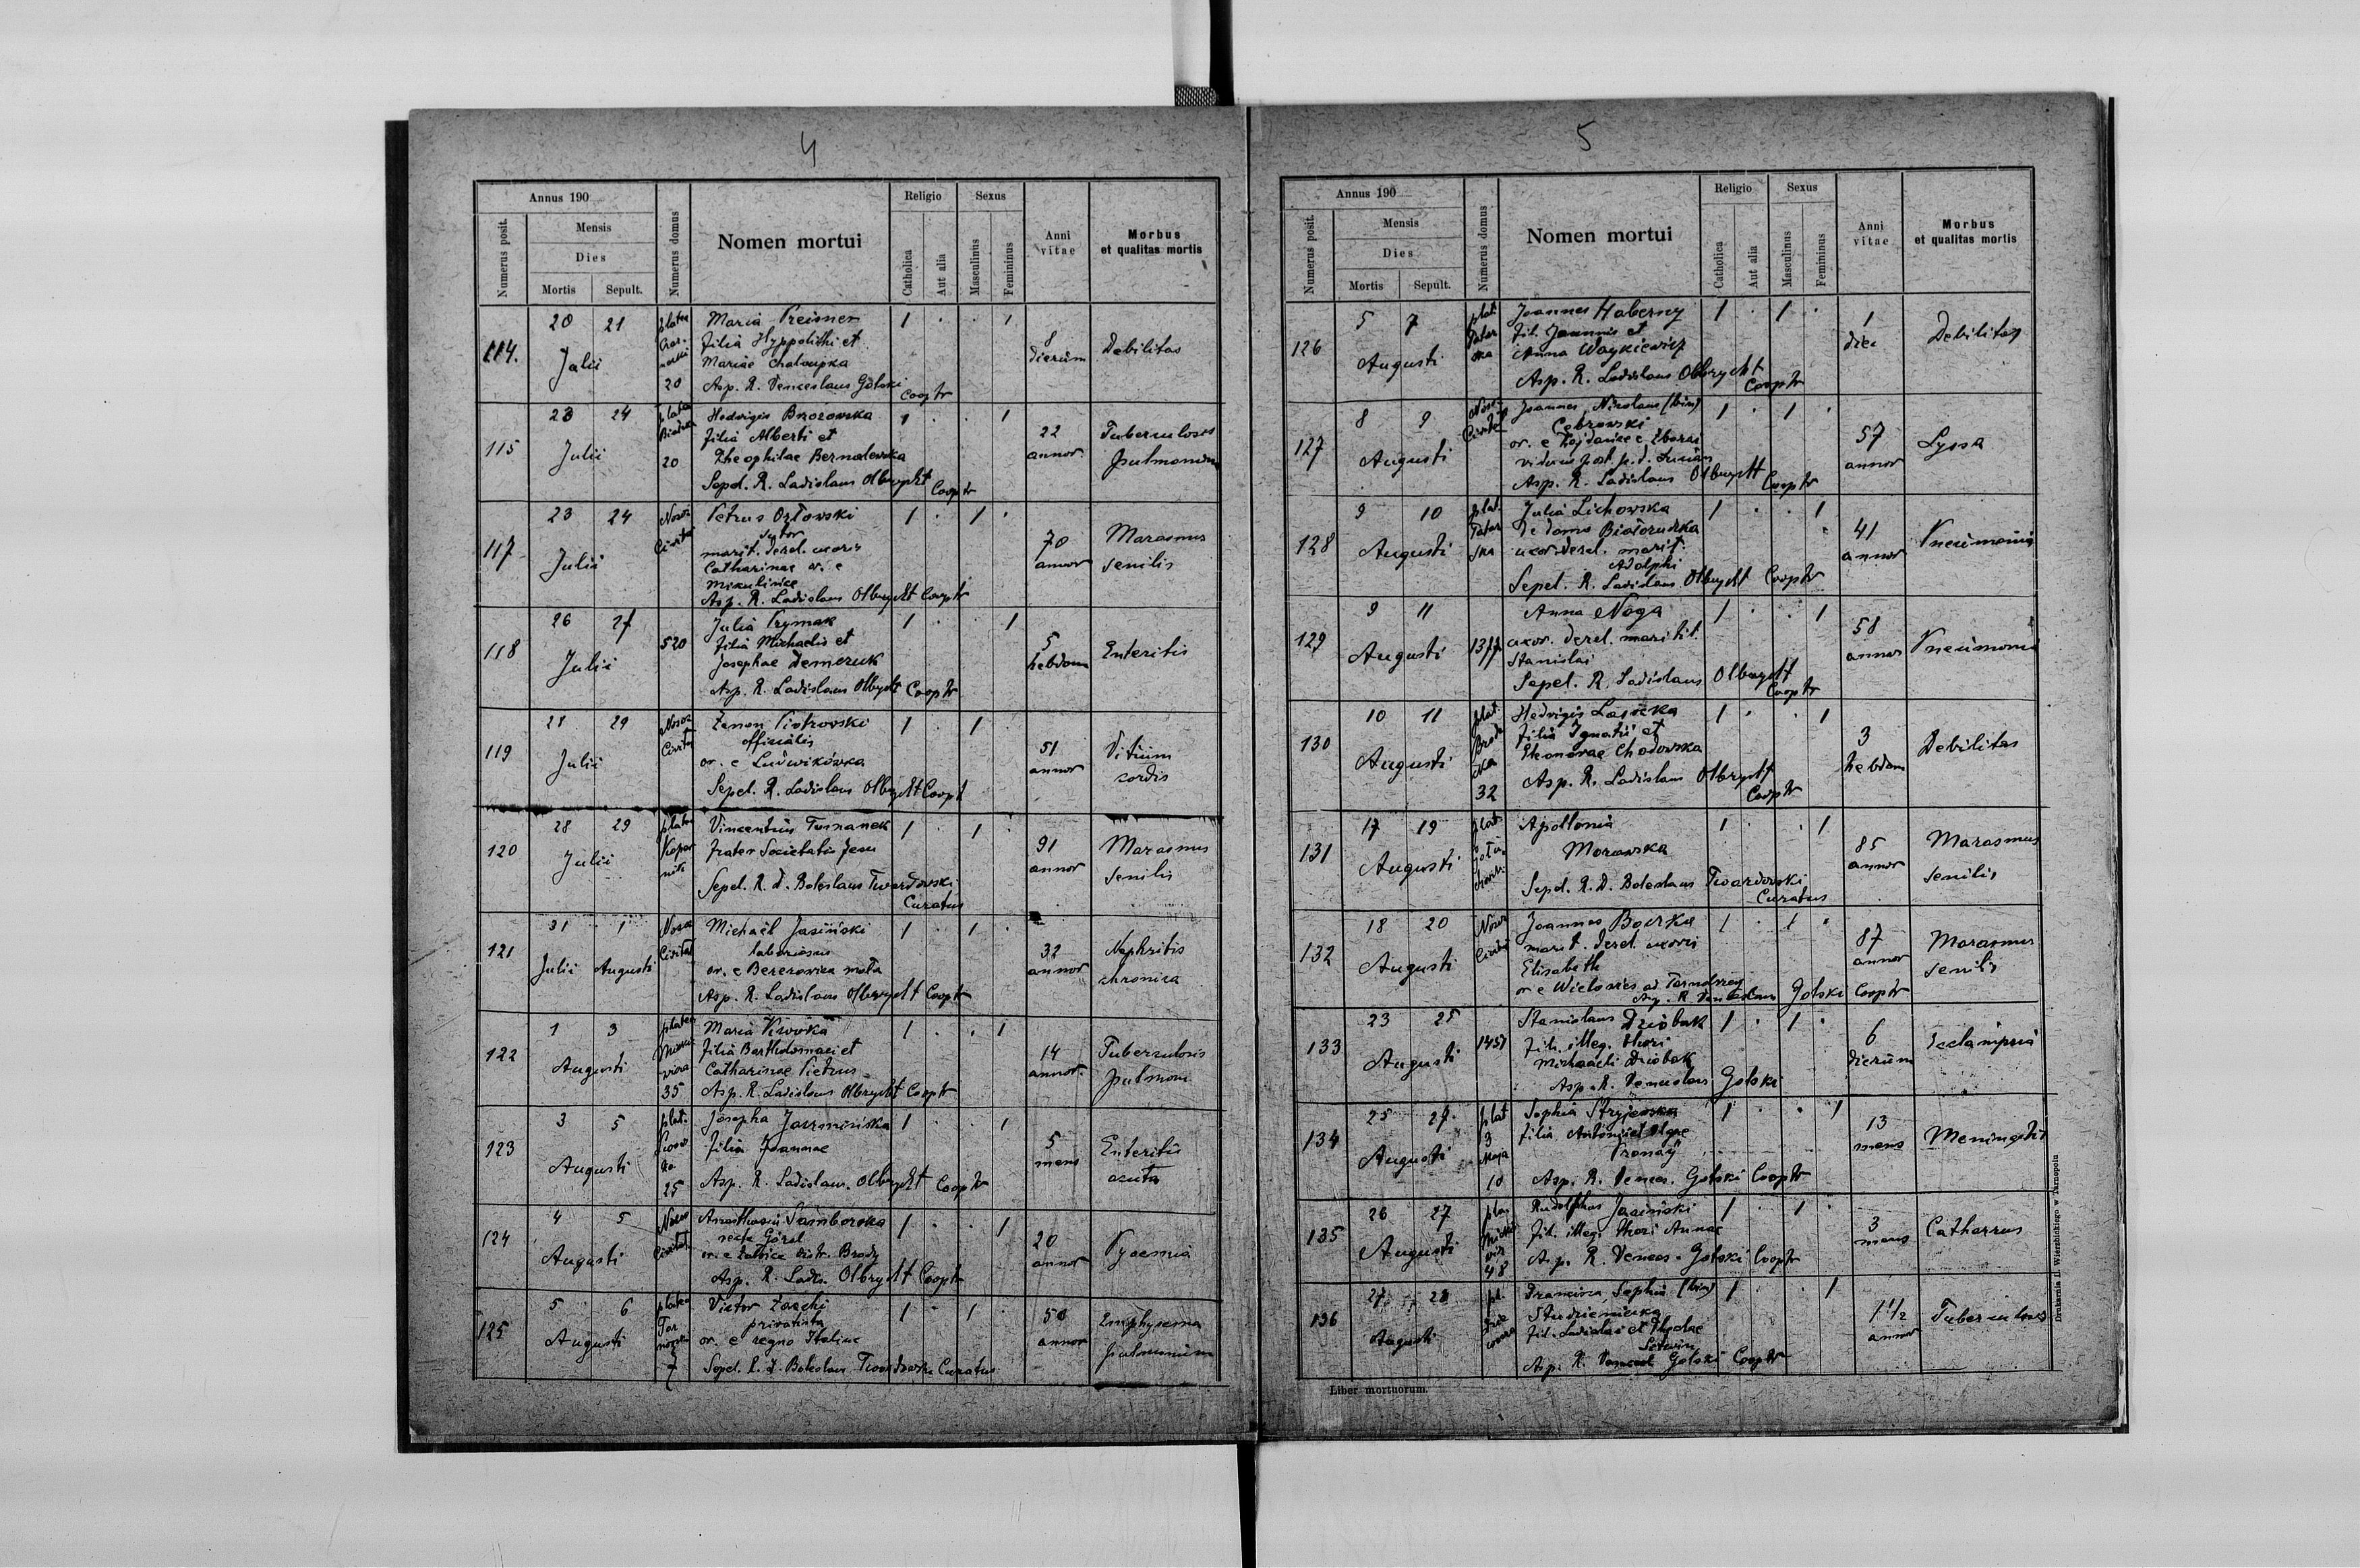 4
Annus 190
Numerus posit.
Mensis
Dies
Mortis
Sepult.
Numerus domus
Nomen mortui
Religio
Catholica
Aut alia
Sexus
Masculinus
Femininus
Anni vitae
Morbus
et qualitas mortis
114.
20 21
Julii
platea
20
Maria Preisner
filia Hyppolithi et
Mariae Chaloupka
Asp. R. Venceslaus Golski
Cooptr
1 . . 1
8
dierum
Debilitas
115
23 24
Julii
platea
20
Hedvigis Brozowska
filia Alberti et
Theophilae
Sepel. R. Ladislaus Olbrycht
Cooptr
1 . . 1
22
annor.
Tuberculosis
pulmonum
117
23 24
Julii
Nosoc
Civitat
Petrus Orłowski
sutor
marit. derel. uxoris
Catharinae or. e
Mikulince
Asp. R. Ladislaus Olbrycht Cooptr
1 . 1 .
70
annor
Marasmus
senilis
118
26 27
Julii
520
Julia Prymak
filia Michaelis et
Josephae Demczuk
Asp. R. Ladislaus Olbrycht Cooptr
1 . . 1
5
hebdom
Enteritis
119
28 29
Julii
Nosoc
Civitat
Zenon Piotrowski
officialis
or. e Ludwikówka
Sepel. R. Ladislaus Olbrycht Coopt
1 . 1 .
51
annor
Vitium
cordis
120
28 29
Julii
platea
Koper
nik
Vincentius Turnanek
frater Societatis Jesu
Sepel. R. d. Boleslaus Twardowski
Curatus
1 . 1 .
91
annor
Marasmus
senilis
121
31 1
Julii Augusti
Nosoc
Civitat
Michaël Jasiński
laboriosus
or. e Berezowica mała
Asp. R. Ladislaus Olbrycht Cooptr
1 . 1 .
32
annor
Nephritis
chronica
122
1 3
Augusti
platea
35
Maria
filia Bartholomaei et
Catharinae Pietrus
Asp. R. Ladislaus Olbrycht Cooptr
1 . . 1
14
annor.
Tuberculosis
pulmon
123
3 5
Augusti
plat.
25
Josepha
filia Joannae
Asp. R. Ladislaus Olbrycht Cooptr
1 . . 1
5
mens
Enteritis
acuta
124
4 5
Augusti
Nosoc
Civitat
Anasthasia Samborska
recte Góral
or. e distr. Brody
Asp. R. Ladis. Olbrycht Cooptr
1 . . 1
20
annor
Pyaemia
125
5 6
Augusti
platea
Tar
nowski
7
Victor
privatista
or. e regno Italiae
Sepel. R. d. Boleslaus Twardowski Curatus
1 . 1 .
50
annor
Emphysema
pulmonum
5
Annus 190
Numerus posit.
Mensis
Dies
Mortis
Sepult.
Numerus domus
Nomen mortui
Religio
Catholica
Aut alia
Sexus
Masculinus
Femininus
Anni vitae
Morbus
et qualitas mortis
126
5 7
Augusti
plat.
Tatar
ska
Joannes Haberny
fil. Joannis et
Anna
Asp. R. Ladislaus Olbrycht
Cooptr
1 . 1 .
1
diei
Debilitas
127
8 9
Augusti
Noso
Civitat
Joannes, Nicolaus (bin)
Cebrowski
or. e
viduus post p. d.
Asp. R. Ladislaus Olbrycht
Cooptr
1 . 1 .
57
annor
Lyssa
128
9 10
Augusti
plat.
Tatar
ska
Julia Lichowska
de domo Białoruska
uxor derel. marit.
Adolphi
Sepel. R. Ladislaus Olbrycht Cooptr
1 . . 1
41
annor
Pneumonia
129
9 11
Augusti
1377
Anna Noga
uxor. derel. mariti.
Stanislai
Sepel. R. Ladislaus Olbrycht
Cooptr
1 . . 1
58
annor
Pneumonia
130
10 11
Augusti
plat.
Brodz
cka
32
Hedvigis
filia Ignatii et
Eleonorae Chodowska
Asp. R. Ladislaus Olbrycht
Cooptr
1 . . 1
3
hebdom
Debilitas
131
17 19
Augusti
plat.
Apollonia
Morawska
Sepel. R. D. Boleslaus Twardowski
Curatus
1 . . 1
85
annor
Marasmus
senilis
132
18 20
Augusti
Nosoc
Civitat
Joannes
marit. derel. uxoris
Elisabeth
or e
Asp. R. Venceslaus Golski Cooptr
1 . 1 .
87
annor
Marasmus
senilis
133
23 25
Augusti
1451
Stanislaus Dziobak
fil. illeg. thori
Michaeli Dziobak
Asp. R. Venceslaus Golski
1 . 1 .
6
dierum
Eclampsia
134
25 27.
Augusti
plat
3
Maja
10
Sophia Stryjewska
filia Antonii et Olgae
Pronay
Asp. R. Vences. Golski Cooptr
1 . . 1
13
mens
Meningitis
135
26 27
Augusti
plat
Mickie
wicz
48
Rudolphus Jasiński
fil. illeg. thori Annae
Asp. R. Vences. Golski Cooptr
1 . 1 .
3
mens
Catharrus
136
27 28
Augusti
pl.
Francisca, Sophia (bin)
Studzienicka
fil. Ladislai et Theclae
Asp. R. Vencesl. Golski Cooptr
1 . . 1
1 1/2
annor
Tuberculosis
Liber mortuorum.
Drukarnia J. Wierzbickiego w Tarnopolu